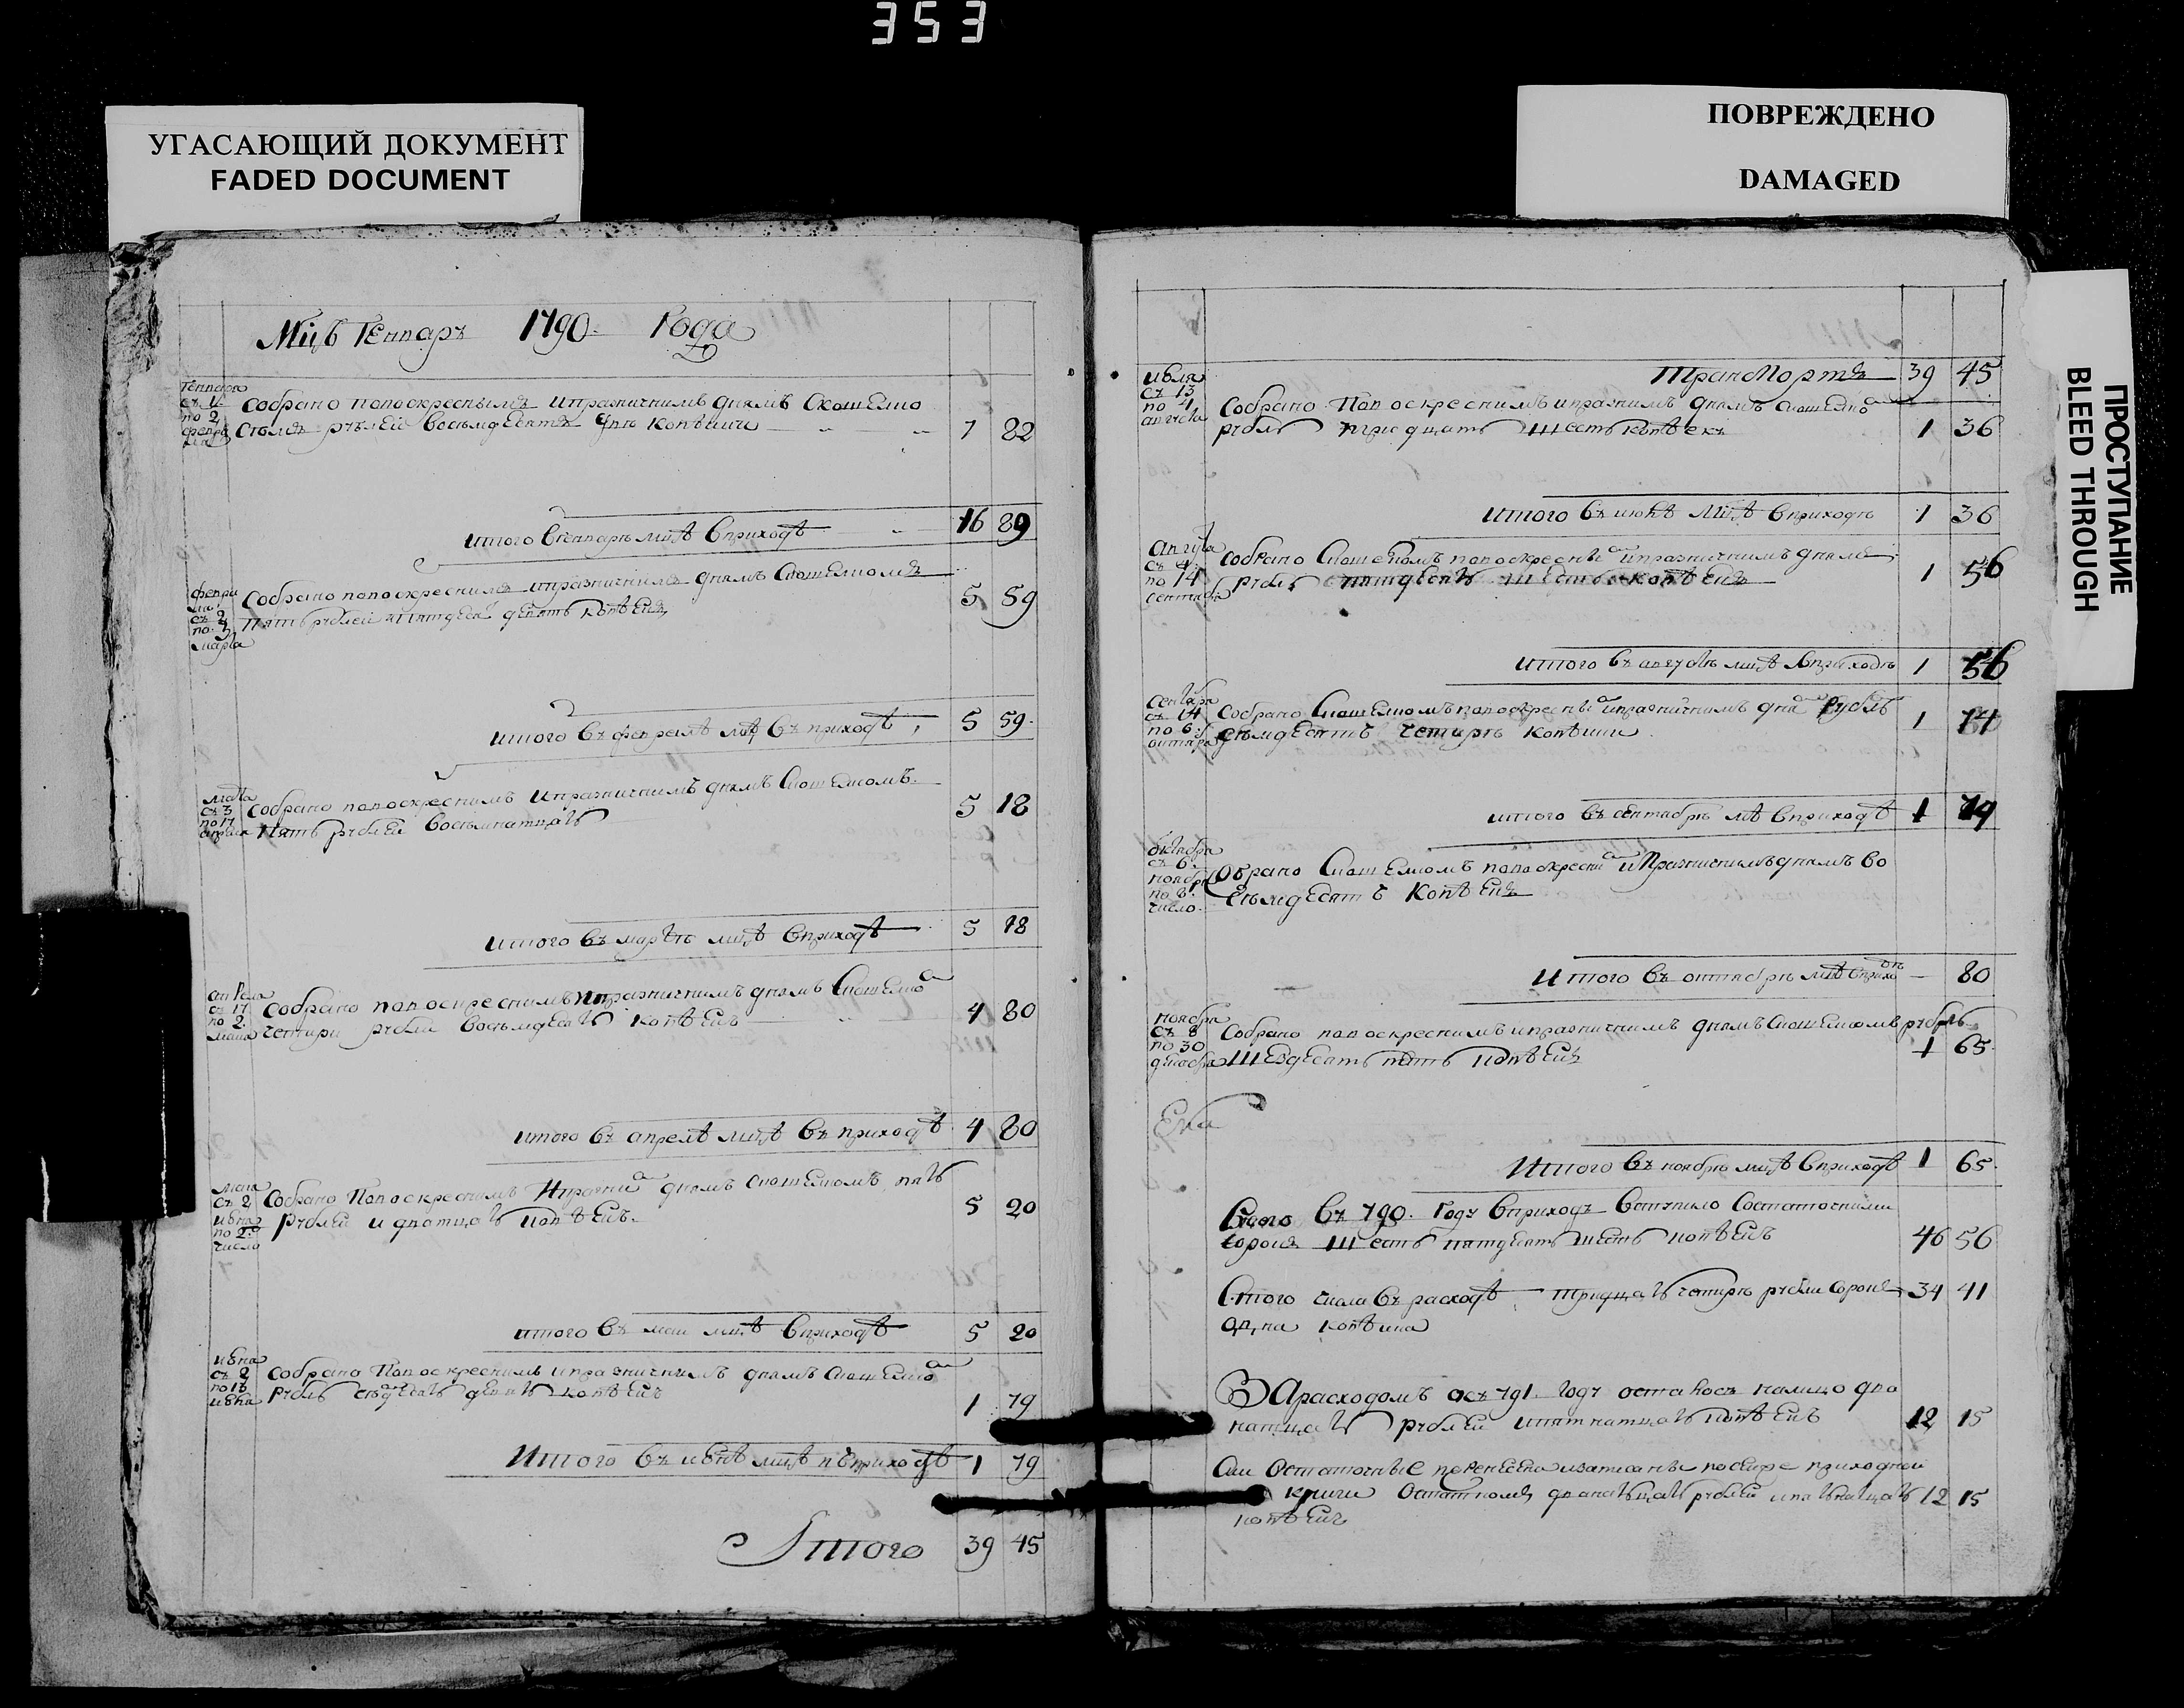 353
УГАСАЮЩИЙ ДОКУМЕНТ
FADED DOCUMENT
ПОВРЕЖДЕНО
DAMAGED
ПРОСТУПАНИЕ
BLEED THROUGH
Мцъ Генварь 1790. Года
Генваря
съ 1
по 2
февра
ля
собрано повоскреснымъ ипразничнимъ днямъ Скошелко
семь рублей восемдесятъ две копейки 7 82
итого вгенваре мцѣ вприходѣ 16 89
февра
ля
съ 2
по 3
марта
Собрано повоскреснимъ ипразничнимъ днямъ Скошелкомъ
Пять рублей и пятдеся девять копѣекъ 5 59
итого въ феврале мцѣ въ приходѣ 5 59
марта
съ 3
по 17
апреля
Собрано повоскреснимъ ипразничнимъ днямъ Скошелкомъ
Пять рублей восемнатцать 5 18
итого въ марте мцѣ вприходѣ 5 18
апреля
съ 17
по 2
маия
Собрано повоскреснимъ ипразничнимъ днямъ Скошелко
четыри рубли восемдесять копѣекъ 4 80
итого въ апрелѣ мцѣ въ приходѣ 4 80
маия
съ 2
июня
по 2
число
Собрано Повоскреснимъ Ипразни днямъ скошелкомъ пять
Рублей и дватцать копѣекъ 5 20
итого въ маи мцѣ вприходѣ 5 20
июня
съ 2
по 13
июня
собрано Повоскреснимъ ипразничнимъ днямъ Скошелко
Рубль девять копѣекъ 1 79
Итого въ июнѣ мцѣ вприходѣ 1 79
Итого 39 45
Транспортъ 39 45
июля
съ 13
по 4
августа
Собрано Повоскреснимъ ипразнимъ днямъ скошелко
рубль тридцать шесть копѣекъ 1 36
итого въ июлѣ мцѣ вприходѣ 1 36
Августа
съ 4
по 14
сентября
собрано Скошелкомъ повоскресны ипразничнимъ днямъ
рубль пятдесять шесть копѣекъ 1 56
итого въ августѣ мцѣ вприходѣ 1 56
Сентября
съ 14
по 6
октября
собрано Скошелкомъ повоскресны ипразничнимъ дня Рубль
семдесятъ четири копѣики 1 74
итого въ сентябрѣ мцѣ вприходѣ 1 74
октября
съ 6
ноября
по 8
число
Собрано Скошелкомъ повоскресни и Празничнимъ днямъ во
семдесятъ копѣекъ
Итого въ октябрѣ мцѣ вприходѣ — 80
ноября
съ 8
по 30
декабря
Собрано повоскреснимъ ипразничнимъ днямъ скошелкомъ рубль
Шездесять пять копѣекъ 1 65
Итого въ ноябрѣ мцѣ вприходѣ 1 65
Всего въ 790. Году вприходъ вступило Состаточними
сорокъ шесть пятдесять шесть копѣекъ 46 56
Стого числа въ расходѣ тридцать четире рубли сорокъ 34 41
одна копѣика
Зарасходомъ къ 791 году осталось налицо два
натцать рублей ипятнатцать копѣекъ 12 15
Сии Остаточные перенесены изаписаны посеире приходней
книги Остаткомъ дванатцать рублей ипятнатцать 12 15
копѣекъ